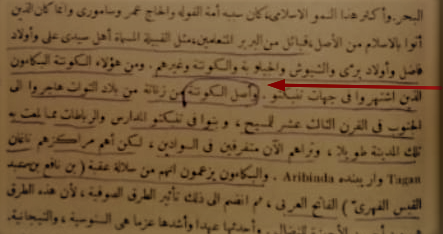 البحر. وأكثر هذا النمو الاسلامى، كان سببه أمة الفوله والحاج عمر وسامورى وإنما كان الذين
أتوا بالاسلام من الأصل، قبائل من البربر المتعلمين، مثل القبيلة المسماة أهل سيدى على وأولاد
فاضل وأولاد برى والشيوش والكونتة وغيرهم. ومن هؤلاء الكونتة البكاءون
الذين اشتهروا فى جهات تنبكتو. وأصل الكونتة من زناتة من بلاد التوات هاجروا الى
الجنوب فى القرن الثالث عشر للمسيح، وبنوا فى تنبكتو المدارس والرباطات مما لمعت به
تلك المدينة طويلا، وتراهم الآن متفرقين فى السوادين، لكن أهم مراكزهم تاغان
Tagan واريبنده Aribinda. والبكاءون يزعمون انهم من سلالة عقبة (بن نافع بن عبد
القيس الفهرى) الفاتح العربى، ثم انضم الى ذلك تأثير الطرق الصوفية، لأن هذه الطرق
وأحدثها عهدا وأشدها عزما هى السنوسية، والتيجانية.